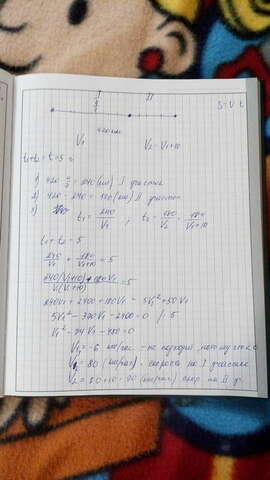 I II
4/7
420 км
S = V t
V₁ V₂ - V₁+10
t₁+t₂ = t = 5 ч
1) 420 · 4/7 = 240 (км) I участок
2) 420 - 240 = 180 (км) II участок
3) t₁ = 240/V₁ ; t₂ = 180/V₂ = 180/(V₁+10)
t₁ + t₂ = 5
240/V₁ + 180/(V₁+10) = 5
(240(V₁+10)+180V₁)/(V₁(V₁+10)) = 5
240V₁ + 2400 + 180V₁ - 5V₁² + 50V₁
5V₁² - 370V₁ - 2400 = 0 /:5
V₁² - 74V₁ - 480 = 0
V₁ = -6 км/час - не подходит,
V₁ = 80 (км/час) - скорость на I участке
V₂ = 80+10 = 90 (км/час) скор. на II у.